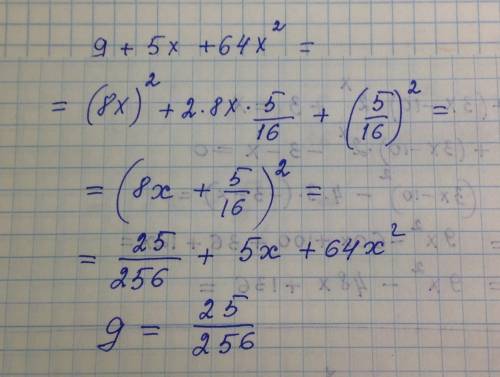 9 + 5x + 64x² =
= (8x)² + 2·8x·5/16 + (5/16)² =
= (8x + 5/16)² =
= 25/256 + 5x + 64x²
9 = 25/256